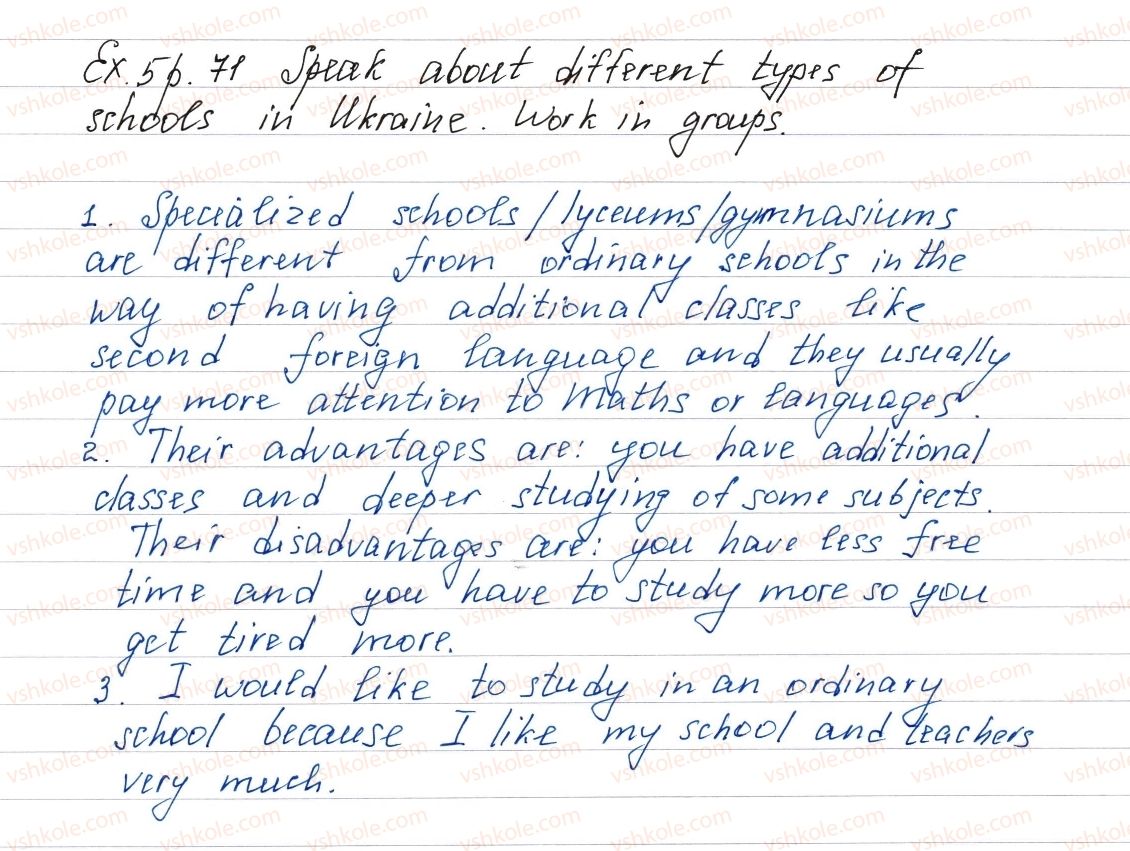 Ex. 5 p. 71 Speak about different types of
schools in Ukraine. Work in groups.
1. Specialized schools/lyceums/gymnasiums
are different from ordinary schools in the
way of having additional classes like
second foreign language and they usually
pay more attention to Maths or languages.
2. Their advantages are: you have additional
classes and deeper studying of some subjects.
Their disadvantages are: you have less free
time and you have to study more so you
get tired more.
3. I would like to study in an ordinary
school because I like my school and teachers
very much.